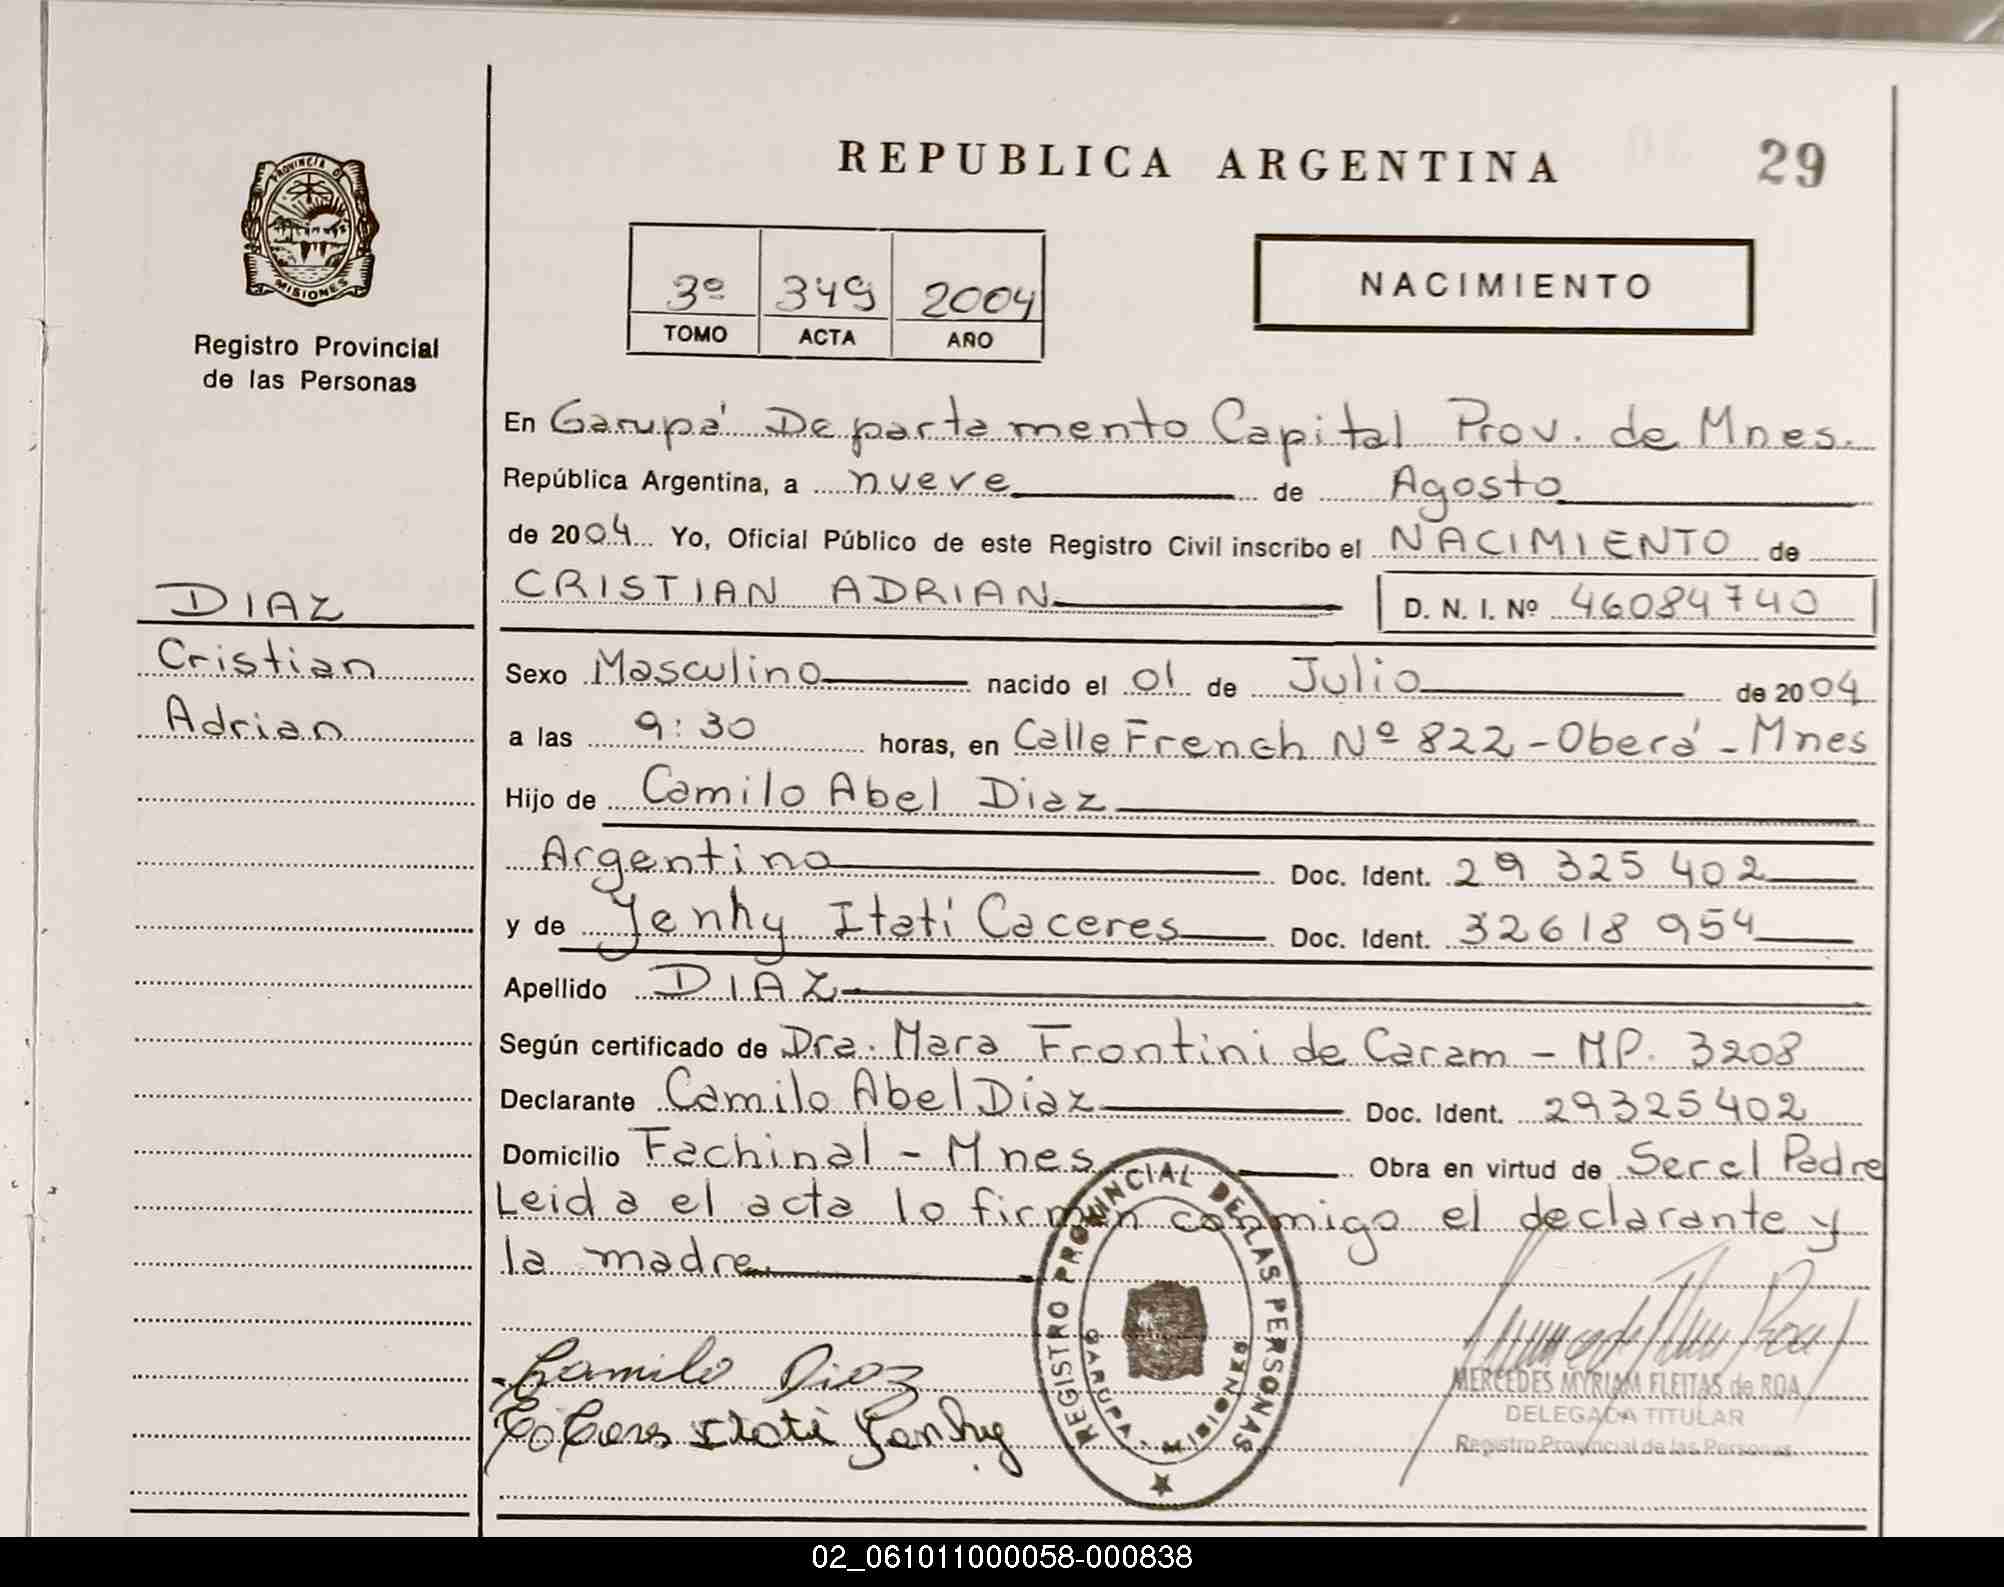 REPUBLICA ARGENTINA
29
PROVINCIA DE
MISIONES
Registro Provincial
de las Personas
3º 349 2004
TOMO ACTA AÑO
NACIMIENTO
En Garupá Departamento Capital Prov. de Mnes.
República Argentina, a nueve de Agosto
de 2004 Yo, Oficial Público de este Registro Civil inscribo el NACIMIENTO de
CRISTIAN ADRIAN D. N. I. Nº 46084740
DIAZ
Cristian
Adrian
Sexo Masculino nacido el 01 de Julio de 2004
a las 9:30 horas, en Calle French Nº 822 - Oberá - Mnes
Hijo de Camilo Abel Diaz
Argentino Doc. Ident. 29 325 402
y de Yenhy Itatí Caceres Doc. Ident. 32618 954
Apellido DIAZ
Según certificado de Dra. Mara Frontini de Caram - MP. 3208
Declarante Camilo Abel Diaz Doc. Ident. 29325402
Domicilio Fachinal - Mnes Obra en virtud de Ser el Padre
Leida el acta lo firman conmigo el declarante y
la madre
REGISTRO PROVINCIAL DE LAS PERSONAS
GARUPA - MISIONES
Camilo Diaz
Itati Yenhy
MERCEDES MYRIAM FLEITAS de ROA
DELEGADA TITULAR
Registro Provincial de las Personas
02_061011000058-000838